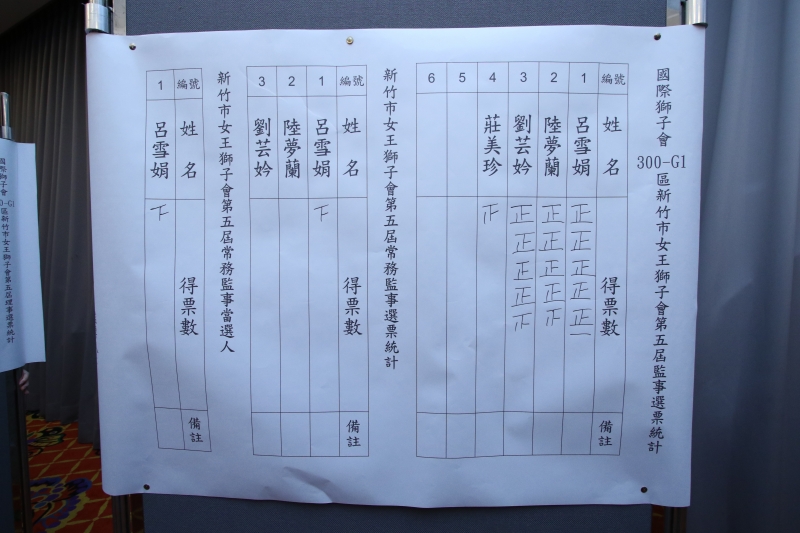 國際獅子會 300-G1 區新竹市女王獅子會第五屆監事選票統計
編號 姓名 得票數 備註
1 呂雪娟 正正正正正
2 陸夢蘭 正正正正下
3 劉芸妗 正正正正下
4 莊美珍 正
5
6
新竹市女王獅子會第五屆常務監事選票統計
編號 姓名 得票數 備註
1 呂雪娟 下
2 陸夢蘭
3 劉芸妗
新竹市女王獅子會第五屆常務監事當選人
編號 姓名 得票數 備註
1 呂雪娟 下
國際獅子會 300-G1 區新竹市女王獅子會第五屆理事選票統計